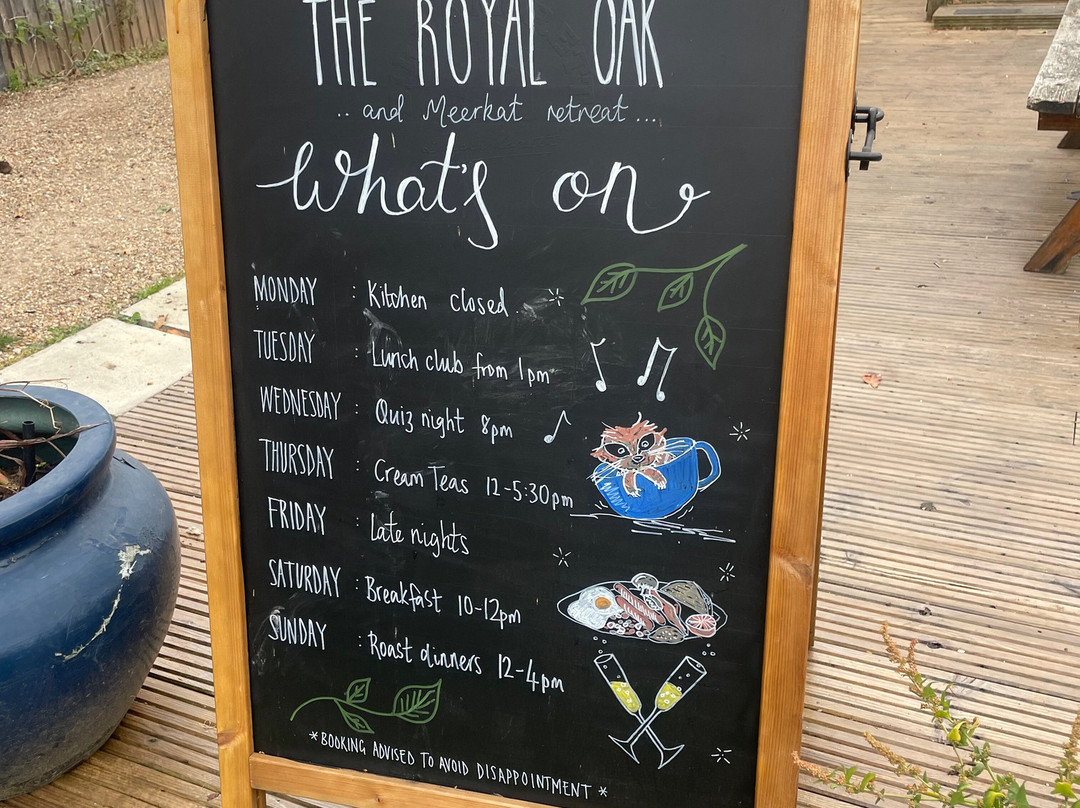 THE ROYAL OAK
.. and Meerkat retreat...
What's on
MONDAY : Kitchen closed
TUESDAY : Lunch club from 1pm
WEDNESDAY : Quiz night 8pm
THURSDAY : Cream Teas 12-5:30pm
FRIDAY : Late nights
SATURDAY : Breakfast 10-12pm
SUNDAY : Roast dinners 12-4pm
*BOOKING ADVISED TO AVOID DISAPPOINTMENT*